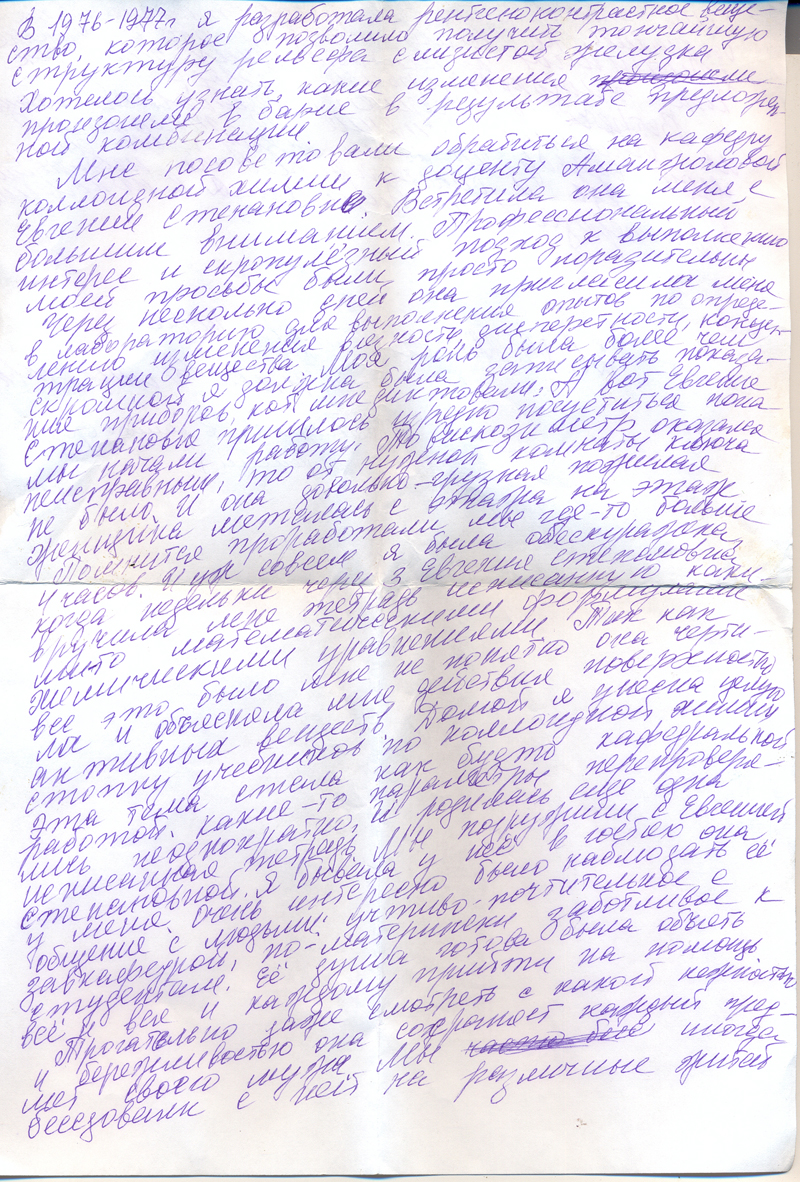 В 1976-1977г. я разработала рентгеноконтрастное веще-
ство, которое позволило получить тончайшую
структуру рельефа слизистой желудка
Хотелось узнать, какие изменения
произошли в барие в результате предложен-
ной комбинации.
Мне посоветовали обратиться на кафедру
коллоидной химии к доценту Аманжоловой
Евгении Степановне. Встретила она меня с
большим вниманием. Профессиональный
интерес и скрупулёзный подход к выполнению
моей просьбы были просто поразительны
Через несколько дней она пригласила меня
в лабораторию для выполнения опытов по опреде-
лению изменения вязкости, дисперстности, концен-
трации вещества. Моя роль была более чем
скромной я должна была записывать показа-
ния приборов, кот. мне диктовали. А вот Евгение
Степановне пришлось изрядно посуетиться пока
мы начали работу. То вискозиметр оказался
неисправным, то от нужной комнаты ключа
не было. И она довольно-грузная пожилая
женщина металась с этажа на этаж
Помнится проработали мы где-то больше
4 часов. И уж совсем я была обескуражена,
когда недельки через 3 Евгения Степановна
вручила мне тетрадь исписанную каки
мито математическими формулами
химическими уравнениями. Так как
все это было мне не понятно она черти-
ла и объясняла мне действия поверхностно
активных веществ. Домой я унесла целую
стопку учебников по коллоидной химии
Эта тема стала как будто кафедральной
работой. какие-то параметры перепроверя-
лись неоднократно, и родилась еще одна
исписанная тетрадь. Мы подружили с Евгенией
Степановной. Я бывала у неё в гостях она
у меня. Очень интересно было наблюдать её
общение с людьми: учтиво-почтительное с
завкафедрой, по-матерински заботливое к
студентам. Её душа готова была объять
всё и вся и каждому прийти на помощь
Трогательно даже смотреть с какой нежностью
и бережливостью она сохраняет каждый пред-
мет своего мужа. Мы иногда
беседовали с ней на различные житей